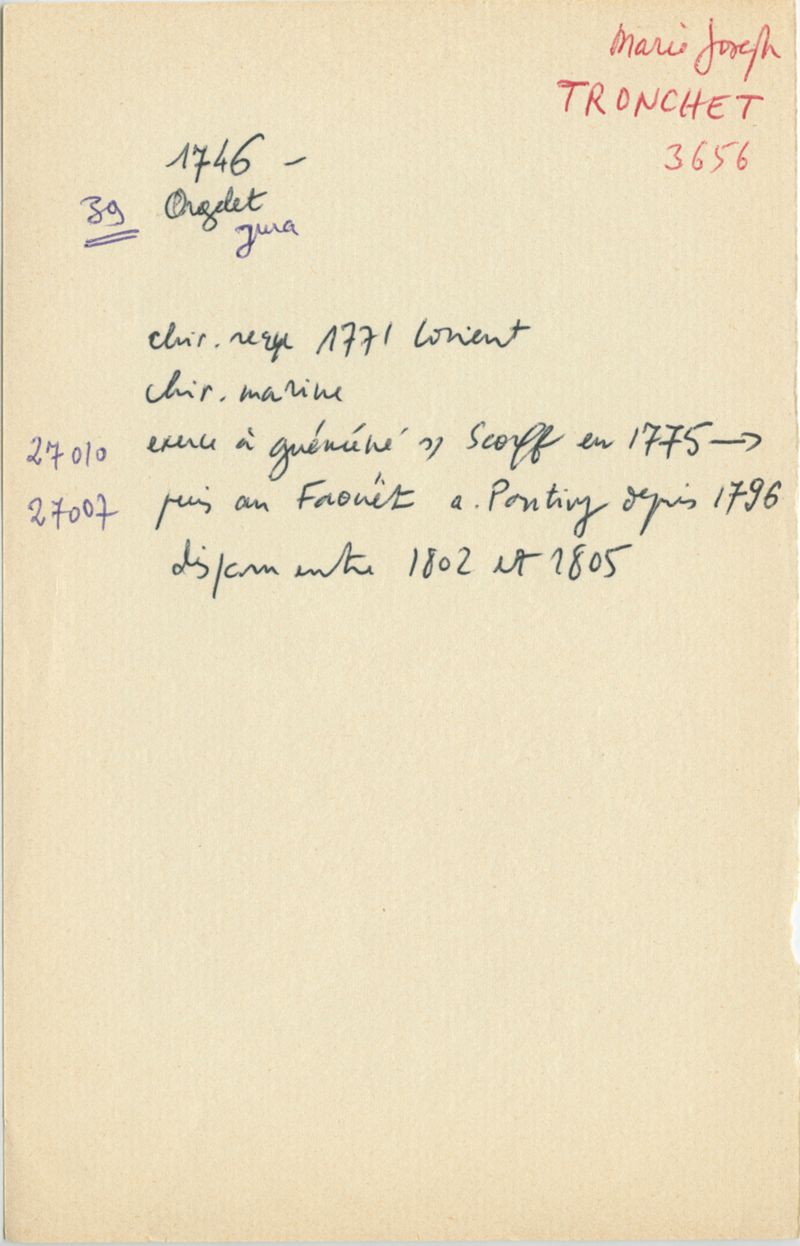 Marie Joseph
TRONCHET
3656
1746 -
39 Orgelet
Jura
chir. reçu 1771 Lorient
chir. marine
27010 exerce à guéméné s/ Scorff en 1775 →
27007 puis au Faouët a. Pontivy depis 1796
disparu entre 1802 et 1805